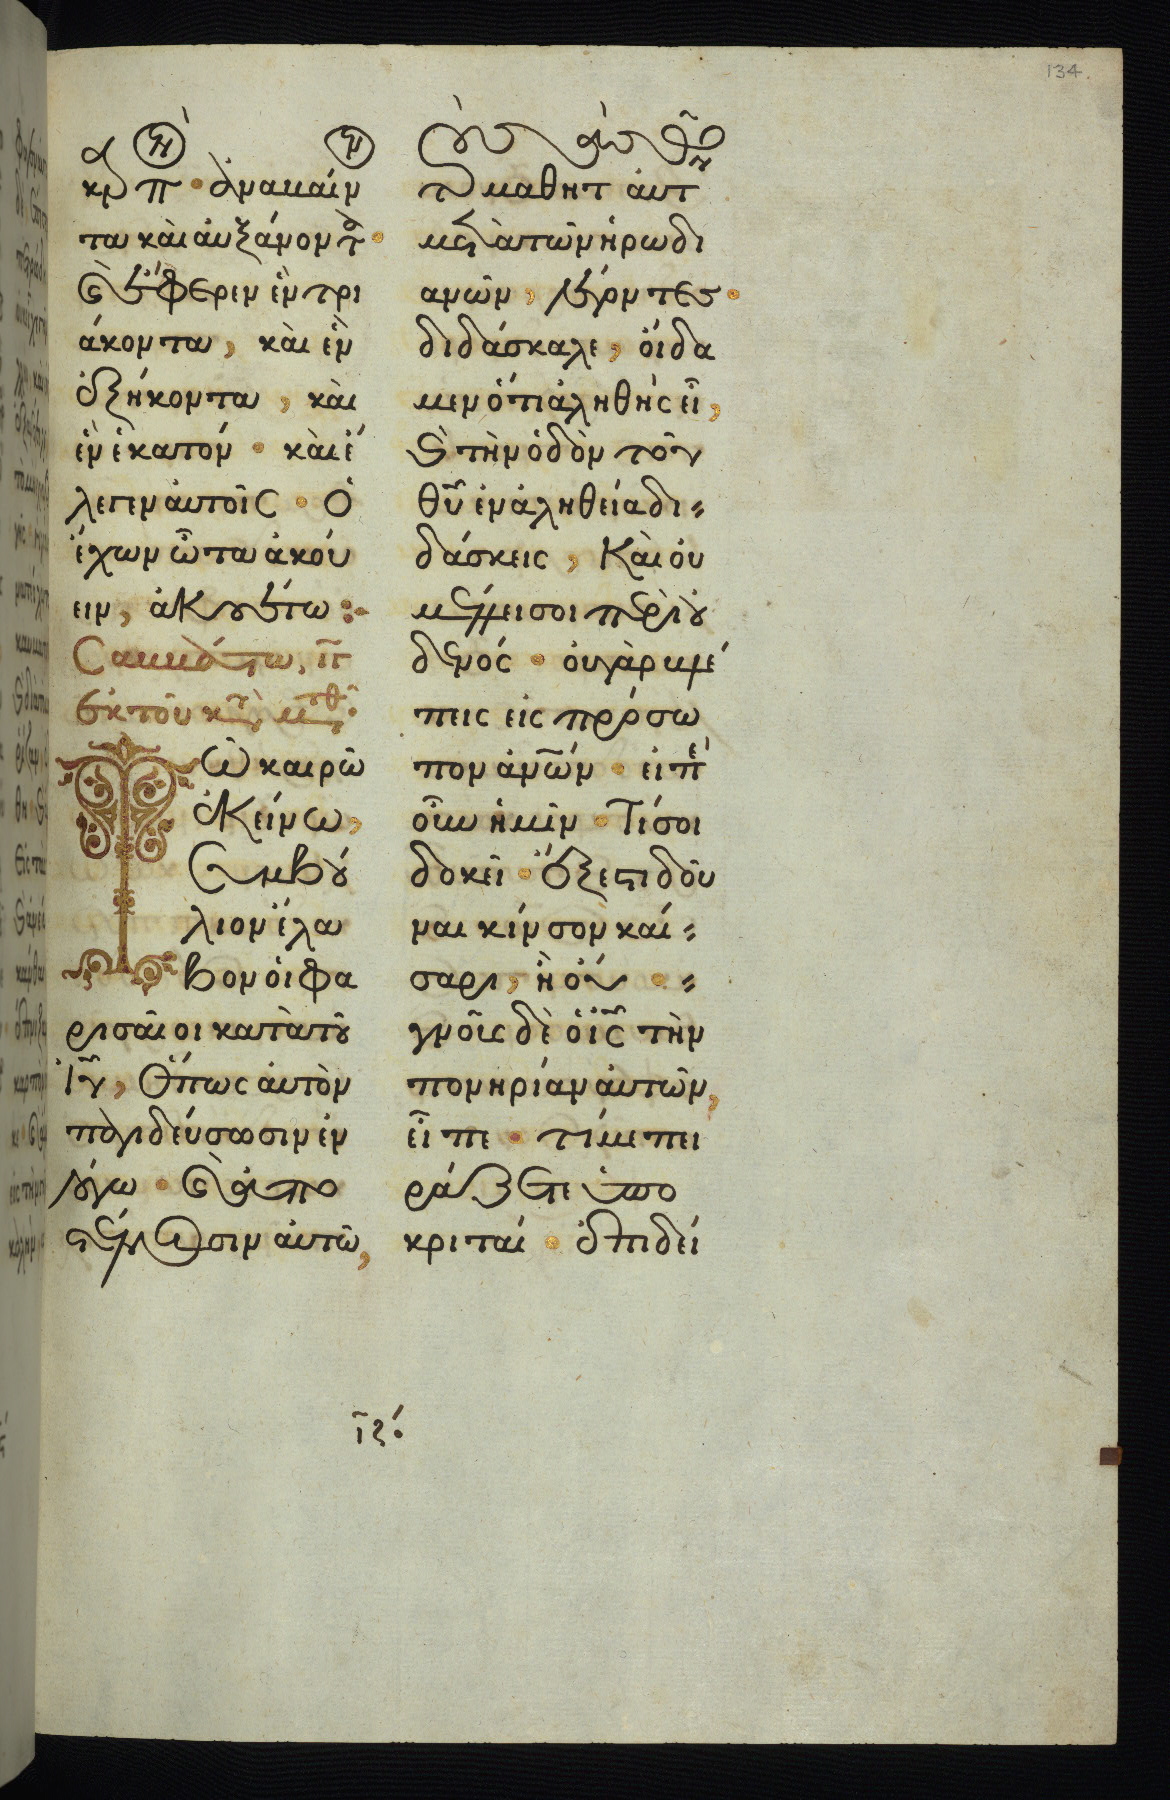 134.
κρπ · ἀναβαίν
τα καὶ αὐξάνοντ ·
καὶ ἔφερεν ἓν τρι
άκοντα, καὶ ἓν
ἑξήκοντα, καὶ
ἓν ἑκατόν · καὶ ἔ
λεγεν αὐτοῖς · Ὁ
ἔχων ὦτα ἀκού
ειν, ἀκουέτω :
Σαββάτω, ιϛ
Ἐκ τοῦ κτ μτθ
Τῶ καιρῶ
ἐκείνω,
συμβού
λιον ἔλα
βον οἱ φα
ρισαῖοι κατὰ τοῦ
ἰυ, Ὅπως αὐτὸν
παγιδεύσωσιν ἐν
λόγω · καὶ ἀπο
στέλλουσιν αὐτῶ,
τ μαθητ αὐτ
μετὰ τῶν ἡρωδι
ανῶν, λέγοντες ·
διδάσκαλε, οἴδα
μεν ὅτι ἀληθὴς εἶ,
καὶ τὴν ὁδὸν τοῦ
θυ ἐν ἀληθεία δι
δάσκεις, Καὶ οὐ
μέλλει σοι περὶ οὐ
δενός · οὐ γὰρ βλέ
πεις εἰς πρόσω
πον ἀνων · εἰπὲ
οὖν ἡμῖν · Τί σοι
δοκεῖ · Ἔξεστι δοῦ
ναι κίνσον καί
σαρι, ἢ οὔ ·
γνοὺς δὲ ὁ ις τὴν
πονηρίαν αὐτῶν,
εἶπε · τί με πει
ράζετε ὑπο
κριταί · ἐπιδεί
ιϛ